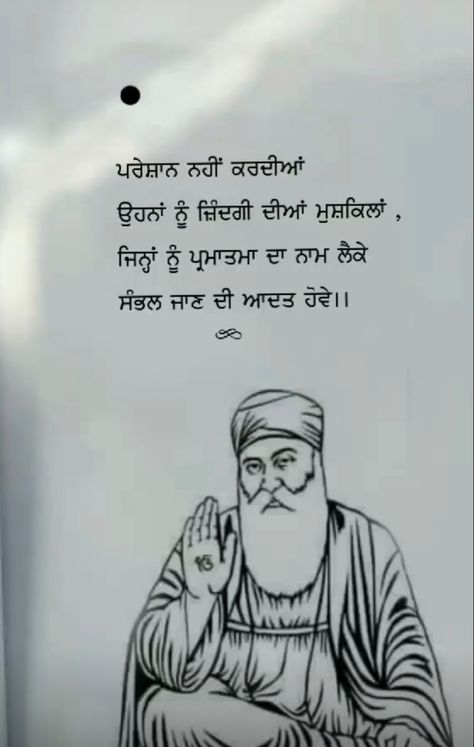 ਪਰੇਸ਼ਾਨ ਨਹੀਂ ਕਰਦੀਆਂ
ਉਹਨਾਂ ਨੂੰ ਜ਼ਿੰਦਗੀ ਦੀਆਂ ਮੁਸ਼ਕਿਲਾਂ ,
ਜਿਨ੍ਹਾਂ ਨੂੰ ਪ੍ਰਮਾਤਮਾ ਦਾ ਨਾਮ ਲੈਕੇ
ਸੰਭਲ ਜਾਣ ਦੀ ਆਦਤ ਹੋਵੇ।।
ੴ